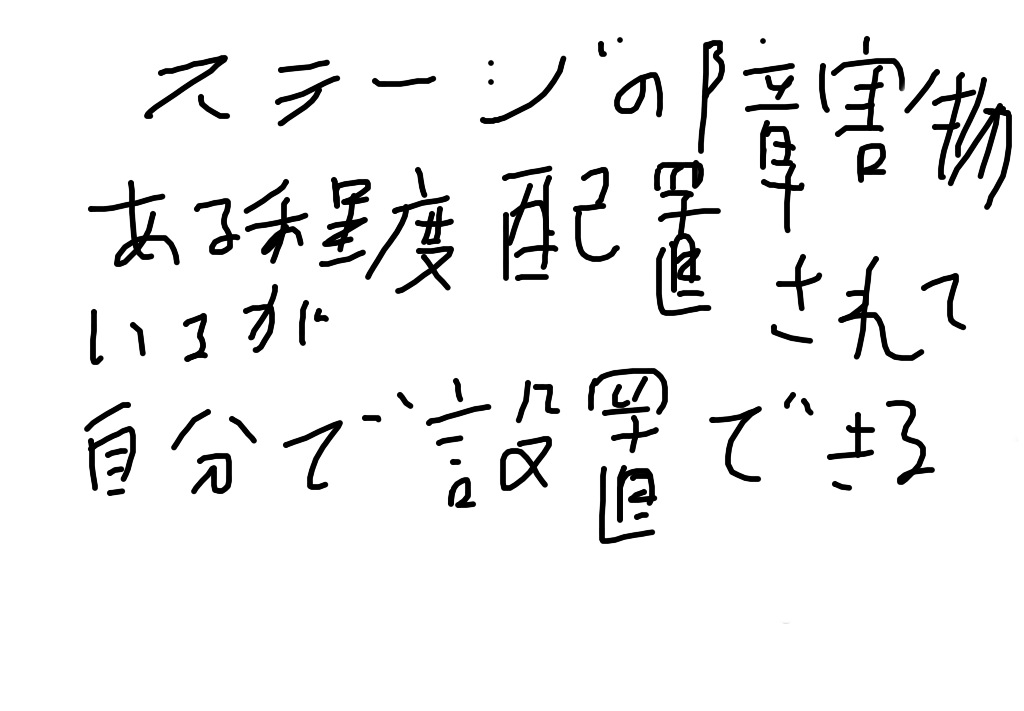 ステージの障害物
ある程度配置されて
いるが
自分で設置できる